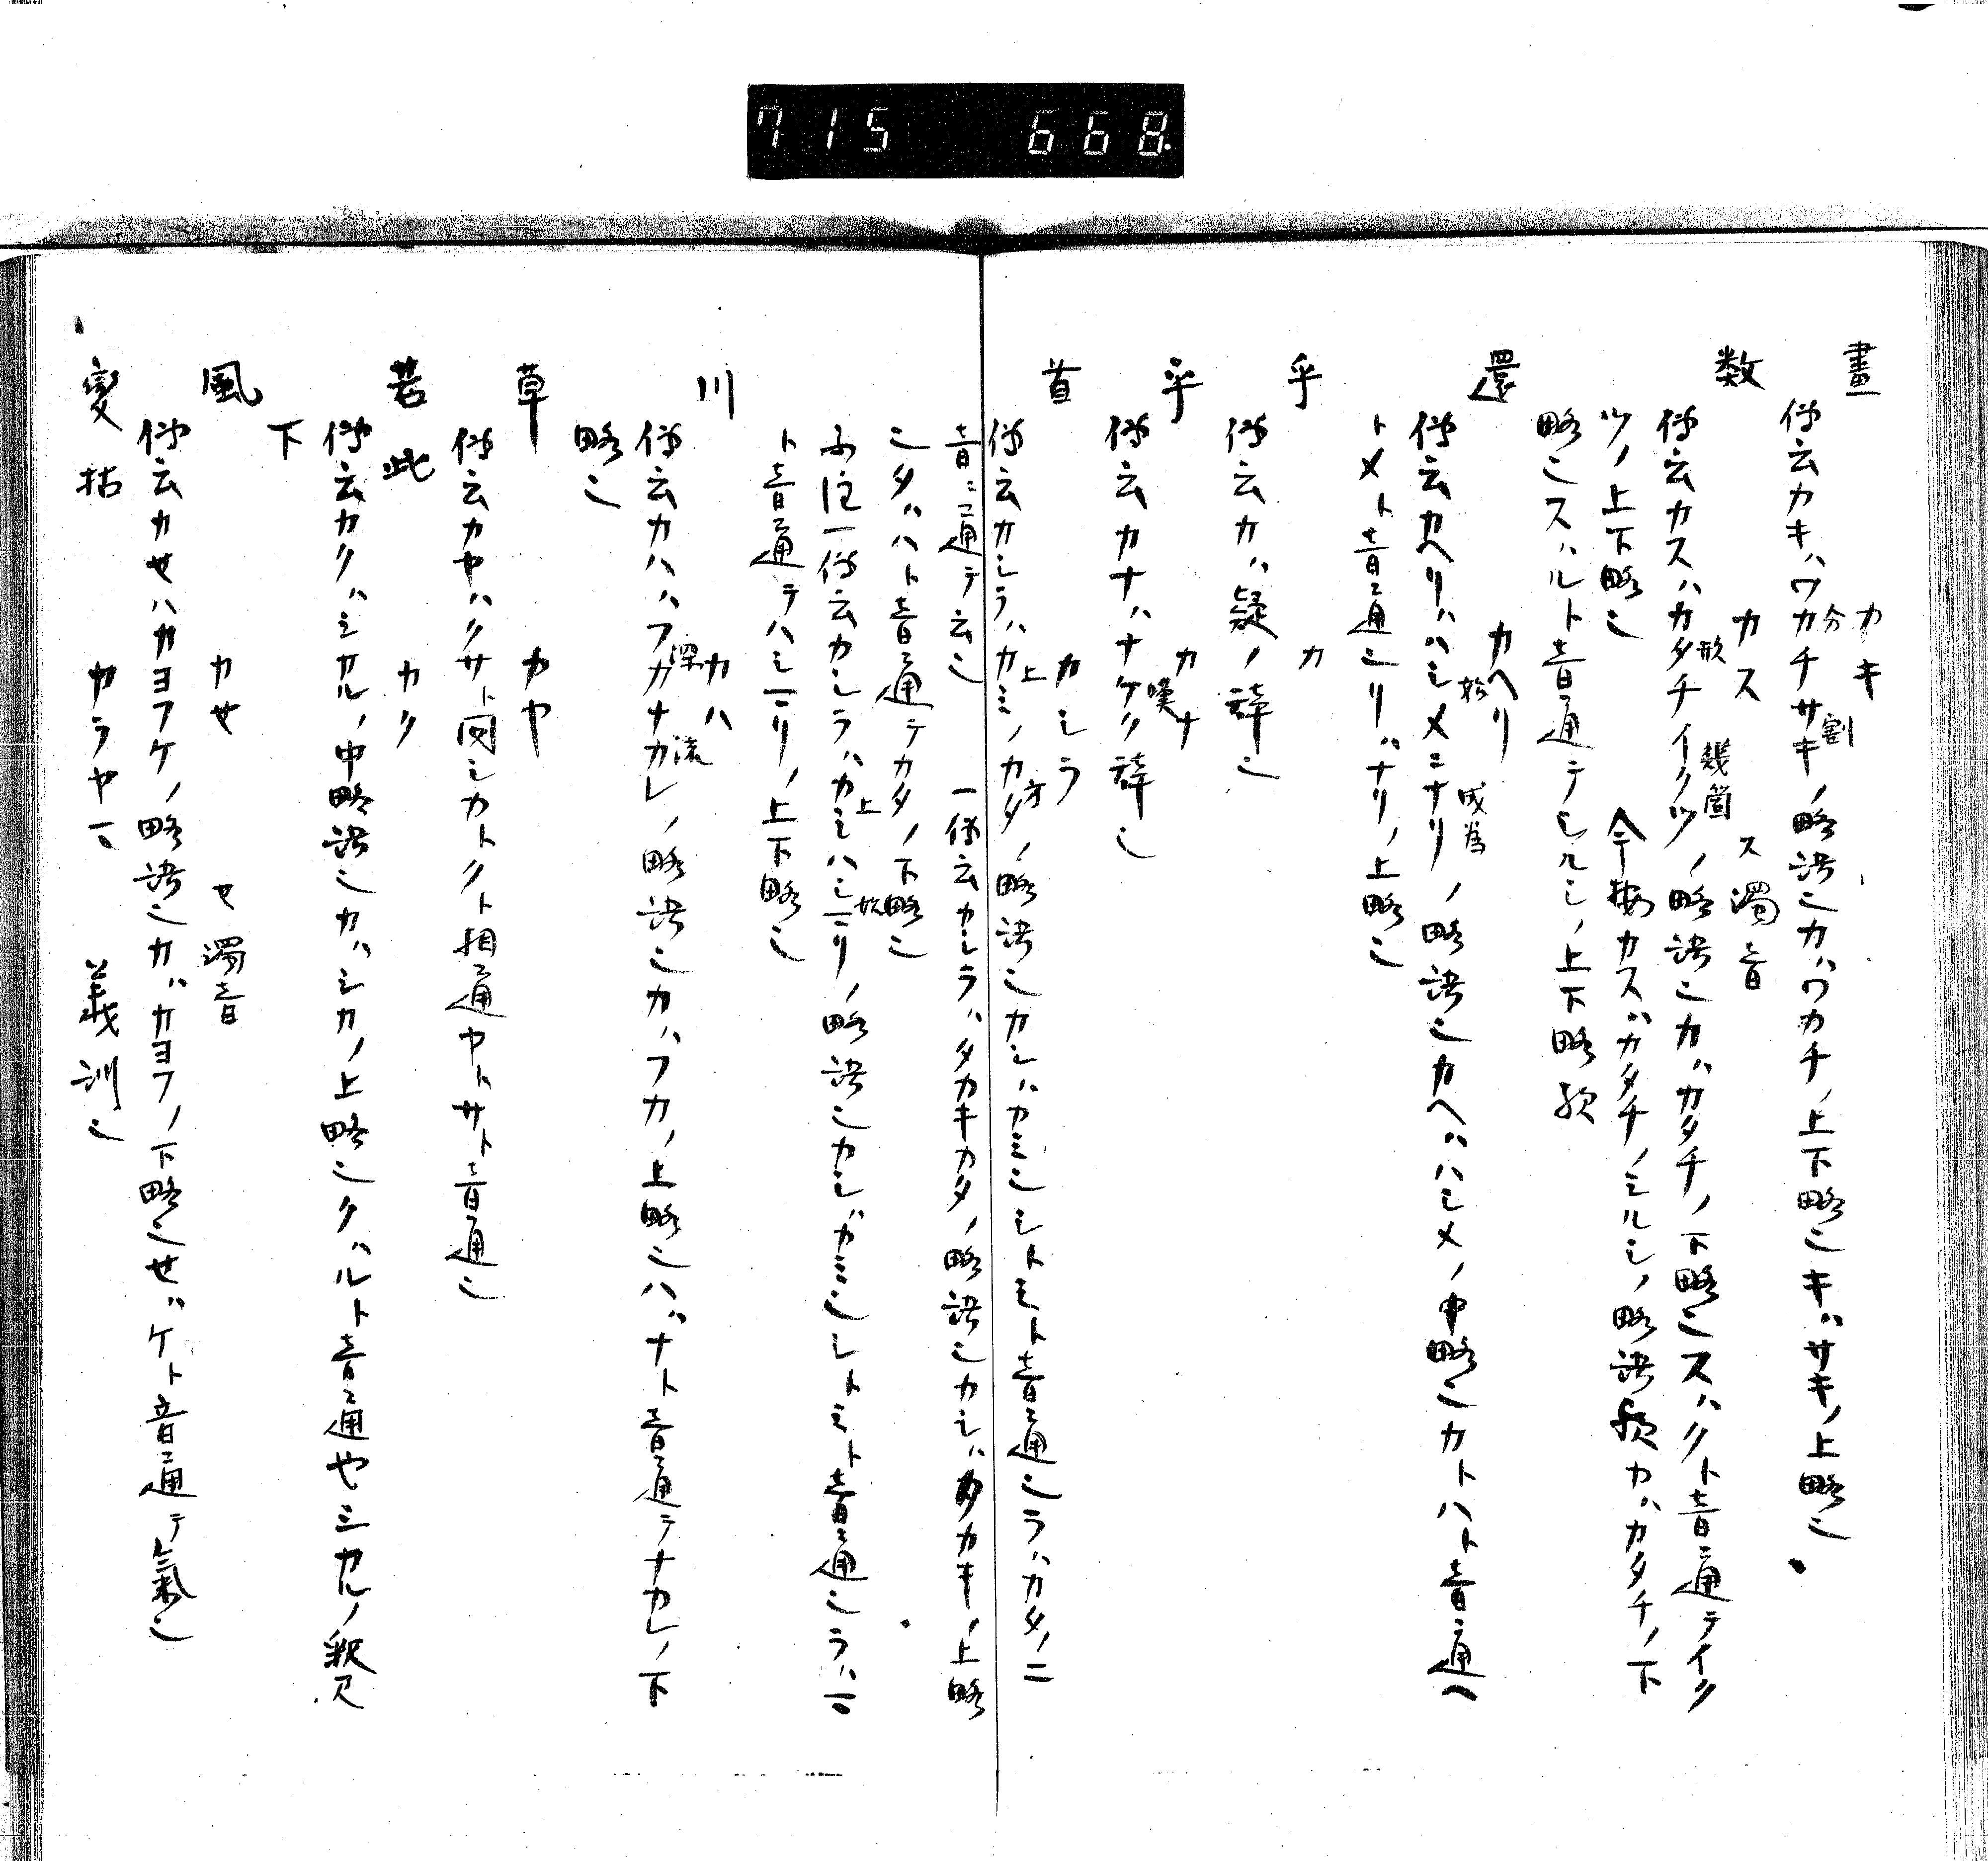 715 668.
畫 カキ
傳云カキハワカチサキノ略語也カハワカチノ上下略也キハサキノ上略也
分 割
数 カス ス濁音
傳云カスハカタチイクツノ略語也カハカタチノ下略也スハクト音通テイク
形 幾箇
ツノ上下略也 今按カスハカタチノシルシノ略語欤カハカタチノ下
略也スハルト音通テシルシノ上下略欤
還 カヘリ
傳云カヘリハハシメニナリノ略語也カヘハハシメノ中略也カトハト音通ヘ
始 成為
トメト音通也リハナリノ上略也
乎 カ
傳云カハ疑ノ辞也
乎 カナ
傳云カナハナケク辞也
嘆
首 カシラ
傳云カシラハカミノカタノ略語也カシハカミ也シトミト音通也ラハカタノ二
上 方
音ニ通テ云也 一傳云カシラハタカキカタノ略語也カシハタカキノ上略
也タハハト音通テカタノ下略也
一傳云カシラハカミハシマリノ略語也カシハカミ也シトミト音通也ラハマ
上 始
ト音通テハシマリノ上下略也
川 カハ
傳云カハハフカナカレノ略語也カハフカノ上略也ハハナト音通テナカレノ下
深 流
略也
草 カヤ
傳云カヤハクサト同シカトクト相通ヤトサト音通也
若此 カク
傳云カクハシカルノ中略語也カハシカノ上略也クハルト音通也シカルノ釈見
下
風 カセ セ濁音
傳云カセハカヨフケノ略語也カハカヨフノ下略也セハケト音通テ氣也
変枯 カラヤマ 義訓也